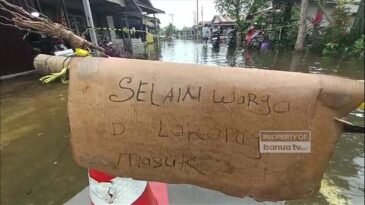 SELAIN WARGA
D LARANG
MASUK
PROPERTY OF
banua tv